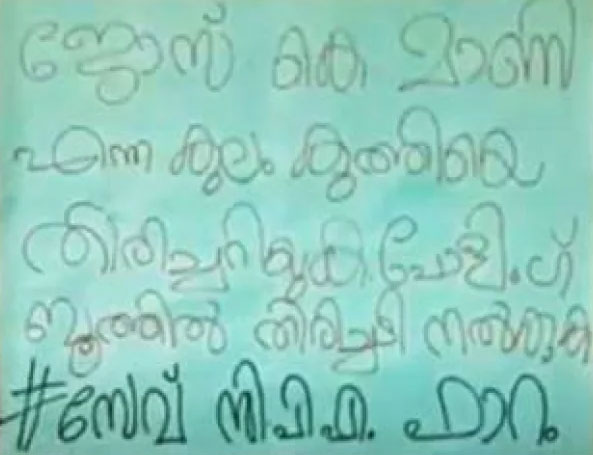 ജോസ് കെ മാണി
എന്ന കുലം കുത്തിയെ
തിരിച്ചറിയുക പോളിംഗ്
ബൂത്തിൽ തിരിച്ചടി നൽകുക
#സേവ് സിപിഎം. ഫോറം